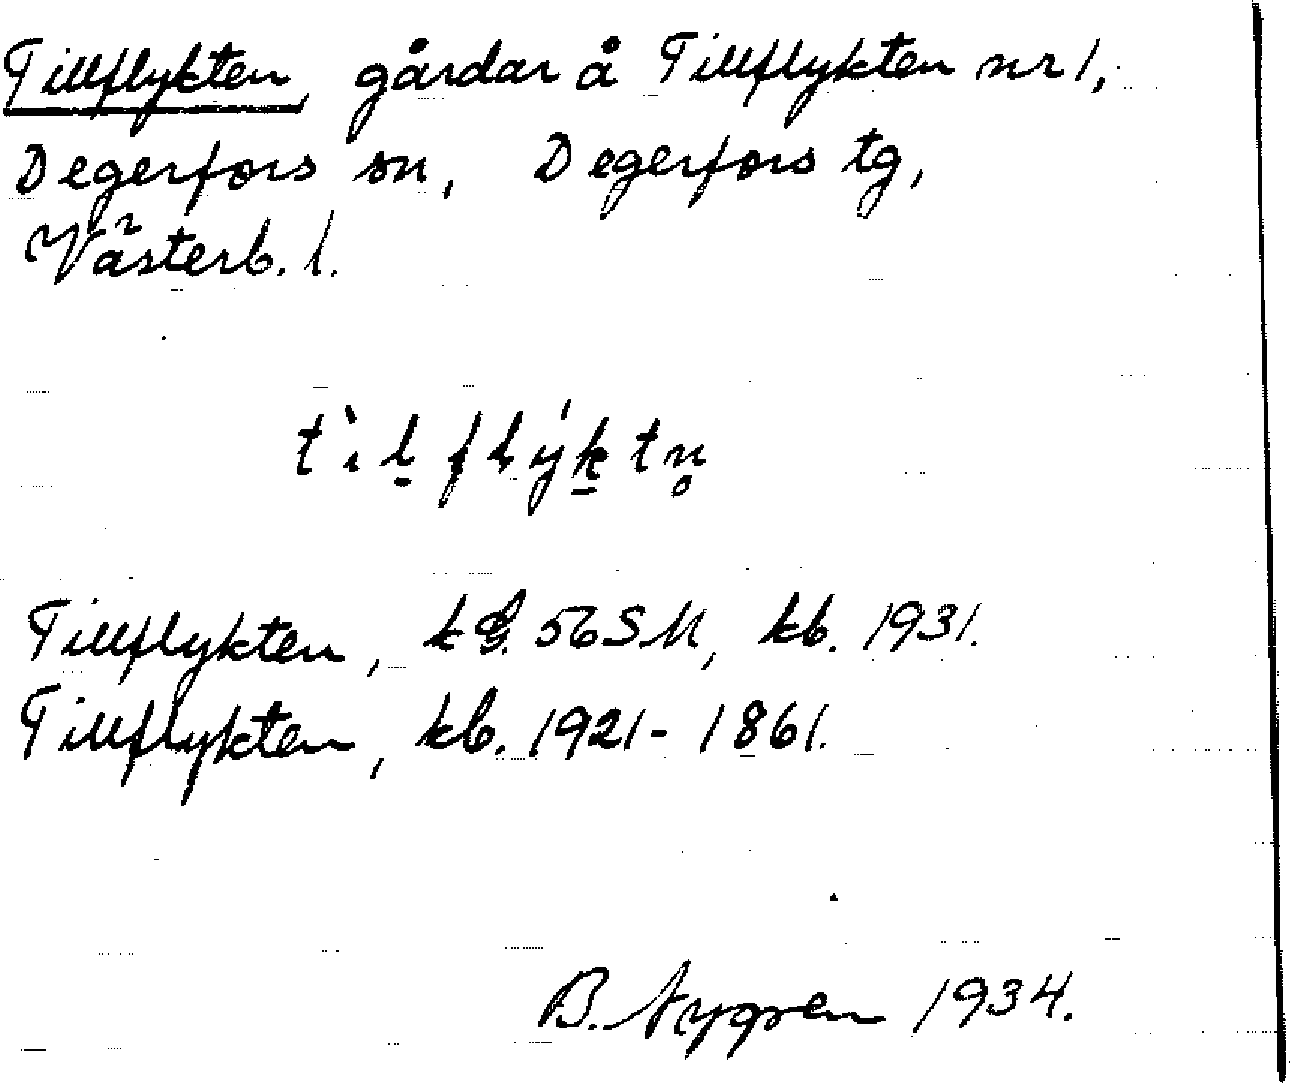 Tillflykten, gårdar å Tillflykten nr 1,
Degerfors sn, Degerfors tg,
Västerb. l.
t`ilflýktn̥
Tillflykten, 56 SM, kb. 1931.
Tillflykten, kb. 1921-1861.
B. Nygren 1934.